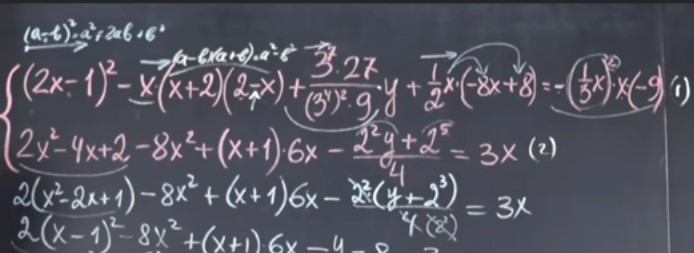 (a-b)²=a²-2ab+b²
(a-b)(a+b)=a²-b²
(2x-1)² - x·(x+2)(2-x) + 3⁷·27/(3⁴)²·9 · y + 1/2 x·(-8x+8) = -(1/3 x)²·x·(-9) (1)
2x²-4x+2-8x²+(x+1)·6x - 2²y+2⁵/4 = 3x (2)
2(x²-2x+1)-8x²+(x+1)6x - 2²(y+2³)/4 = 3x
2(x-1)²-8x²+(x+1)·6x-y-8